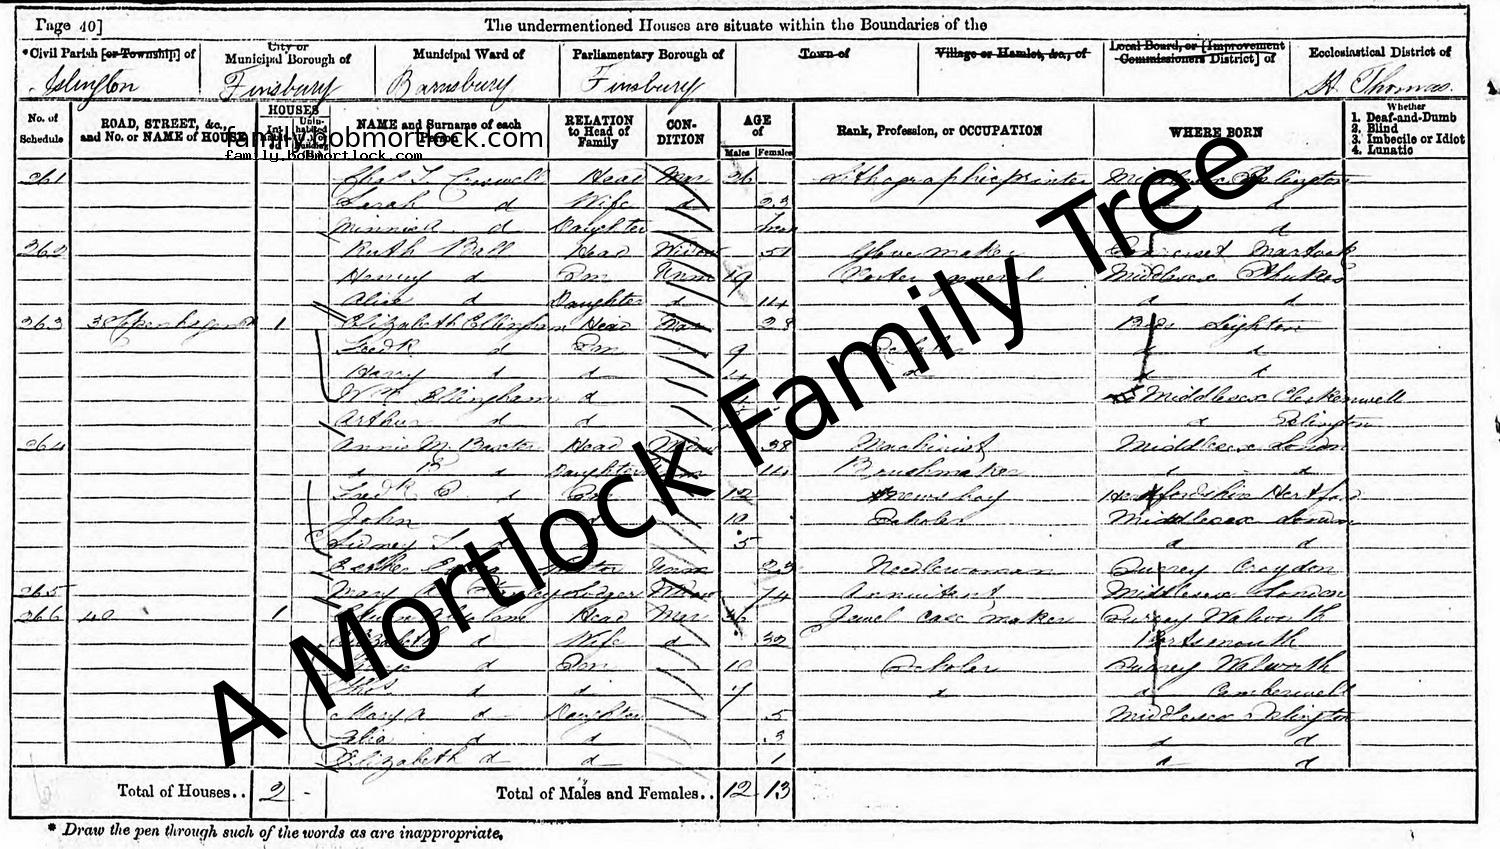 Page 40]
The undermentioned Houses are situate within the Boundaries of the
*Civil Parish [or Township] of
City or Municipal Borough of
Municipal Ward of
Parliamentary Borough of
Town of
Village or Hamlet, &c., of
Local Board, or [Improvement Commissioners District] of
Ecclesiastical District of
Islington Finsbury Barnsbury Finsbury St. Thomas
No. of Schedule
ROAD, STREET, &c., and No. or NAME of HOUSE
HOUSES
NAME and Surname of each Person
RELATION to Head of Family
CONDITION
AGE of
Males Females
Rank, Profession, or OCCUPATION
WHERE BORN
Whether
1. Deaf-and-Dumb
2. Blind
3. Imbecile or Idiot
4. Lunatic
family.bobmortlock.com
family.bobmortlock.com
261 Head Mar 26 Lithographic printer Middlesex Islington
Sarah d Wife d 23 d
Minnie d Daughter d
262 Ruth Bell Head Widow 51 Glove maker Somerset Martock
Henry d Son Unm 19 Porter general Middlesex St Lukes
Alice d Daughter d 14 d d
263 1 Elizabeth Ellingham Head Mar 28 Beds Leighton
Fredk d Son 9 Scholar d d
Harry d d d d d
Wm Ellingham d Middlesex Clerkenwell
Arthur d d d Islington
264 Annie M Baxter Head Widow 38 Machinist Middlesex London
d d Daughter Unm 14 Brushmaker d d
Fredk d Son 12 news boy Hertfordshire Hertford
John d d 10 Scholar Middlesex London
Sidney d d 5 d d
Esther Unm 23 Needlewoman Surrey Croydon
265 Mary Lodger Widow 74 Annuitant Middlesex London
266 40 1 Head Mar 36 Jewel case maker Surrey Walworth
Elizabeth d Wife d 32 Portsmouth
d Son 10 Scholar Surrey Walworth
d d 7 d d Camberwell
Mary A d Daughter 5 Middlesex Islington
d d 3 d d
Elizabeth d d 1 d d
Total of Houses.. 2 -
Total of Males and Females.. 12 13
* Draw the pen through such of the words as are inappropriate.
A Mortlock Family Tree